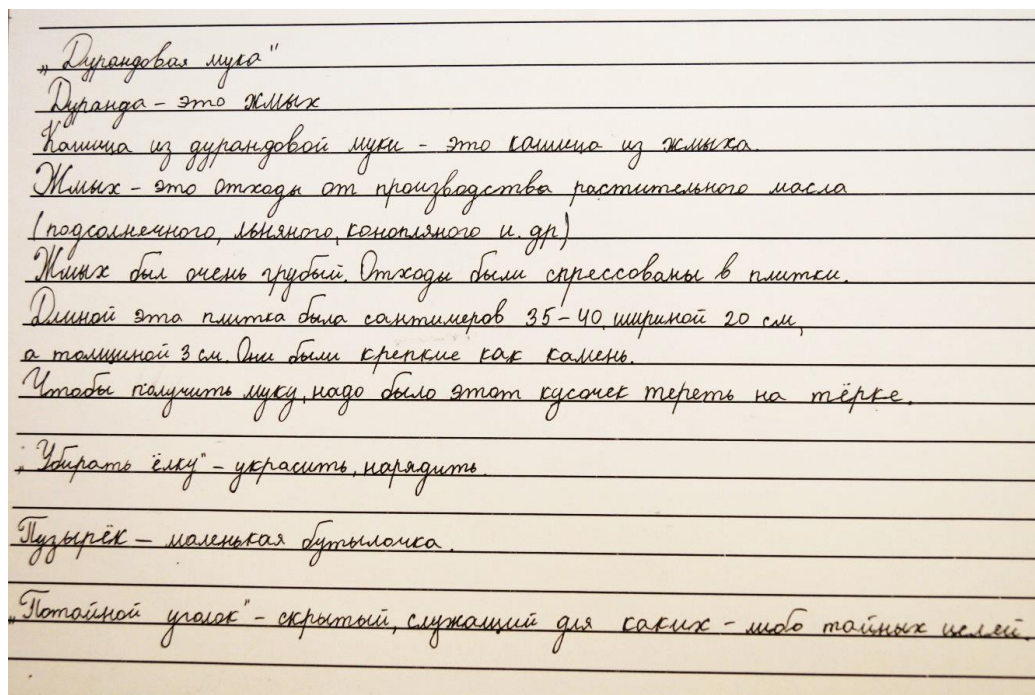 „Дурандовая мука"
Дуранда - это жмых
Кашица из дурандовой муки - это кашица из жмыха.
Жмых - это отходы от производства растительного масла
(подсолнечного, льняного, конопляного и. др)
Жмых был очень грубый. Отходы были спрессованы в плитки.
Длиной эта плитка была сантимеров 35-40, шириной 20 см,
а толщиной 3 см. Они были крепкие как камень.
Чтобы получить муку, надо было этот кусочек тереть на тёрке.
„Убирать ёлку" - украсить, нарядить.
Пузырёк - маленькая бутылочка.
„Потайной уголок" - скрытый, служащий для каких - либо тайных целей.